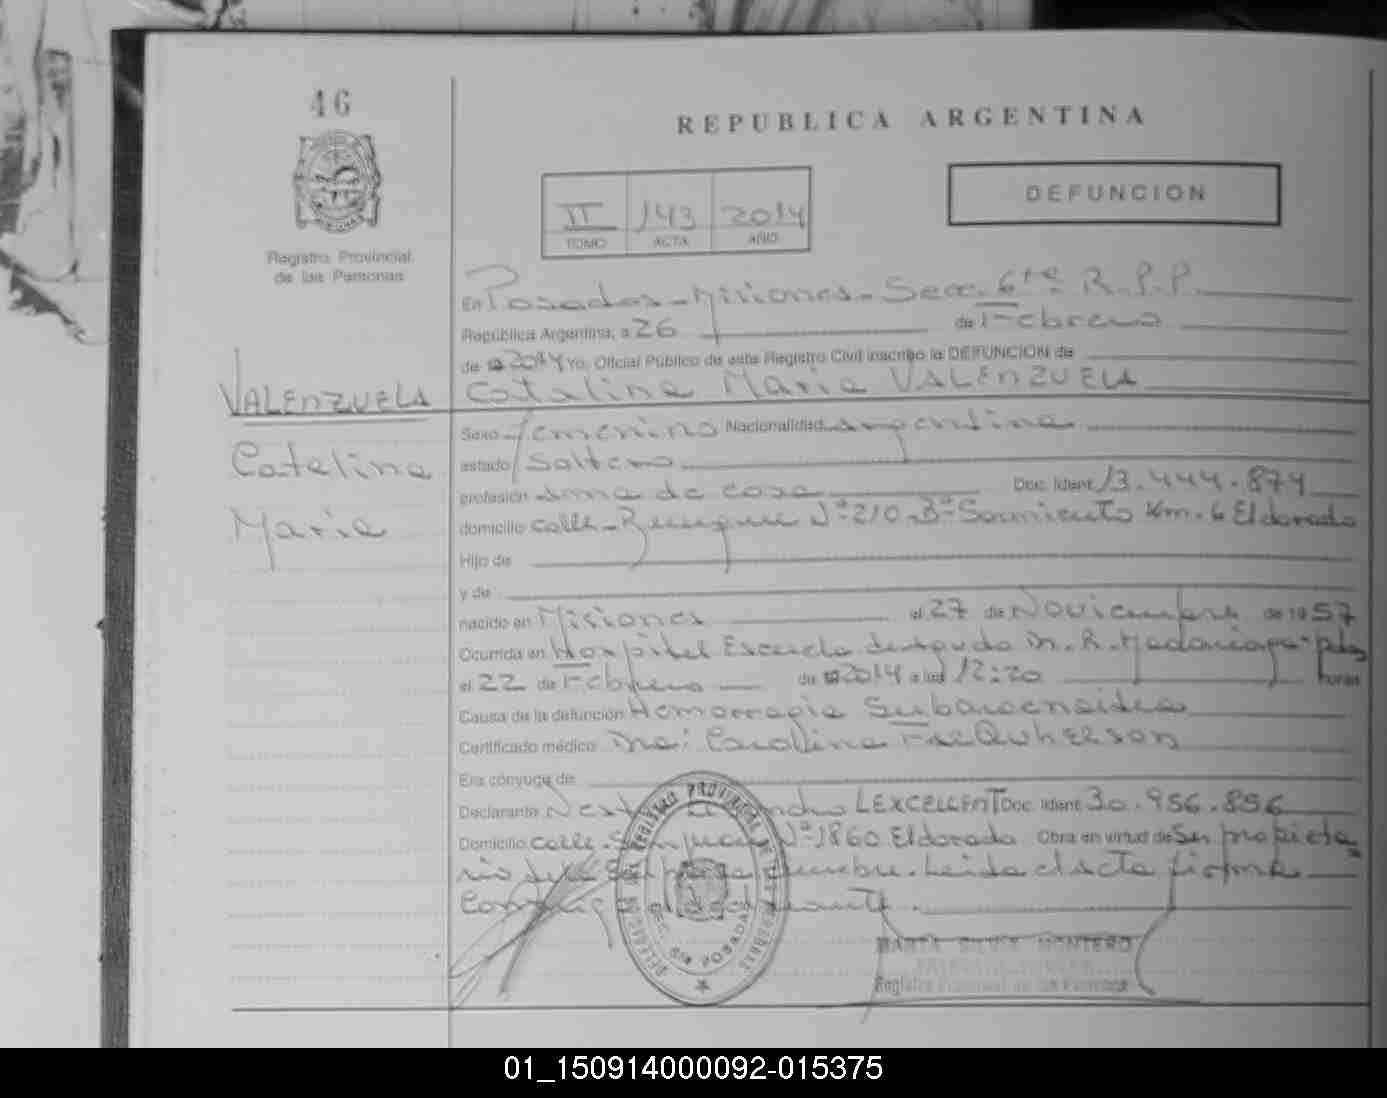 46
REPUBLICA ARGENTINA
DEFUNCION
II 143 2014
TOMO ACTA AÑO
Registro Provincial
de las Personas
En Posadas - Misiones - Secc. 6ta R.P.P.
República Argentina, a 26 de Febrero
de 2014 Yo, Oficial Público de este Registro Civil inscribo la DEFUNCION de
VALENZUELA
Catalina María VALENZUELA
Catalina
María
Sexo femenino Nacionalidad argentina
estado Soltera
profesión ama de casa Doc. Ident. 13.444.874
domicilio calle - Nº 210 - Bº Sarmiento Km. 6 Eldorado
Hijo de
y de
nacido en Misiones el 27 de Noviembre de 1957
Ocurrida en Hospital Escuela de Agudo Dr. R. Madariaga - Pdas
el 22 de Febrero de 2014 a las 12:20 horas
Causa de la defunción Hemorragia Subaracnoidea
Certificado médico Dra: Carolina
Era cónyuge de
Declarante LEXCELLENT Doc. Ident. 30.956.856
Domicilio calle - San Juan Nº 1860 Eldorado Obra en virtud de Ser propieta
rio de la Leida el Acta firma
Conmigo el declarante.
REGISTRO PROVINCIAL DE LAS PERSONAS
DELEGACION
SEC. 6ta POSADAS
MARTA SILVIA MONTERO
Registro Provincial de las Personas
01_150914000092-015375